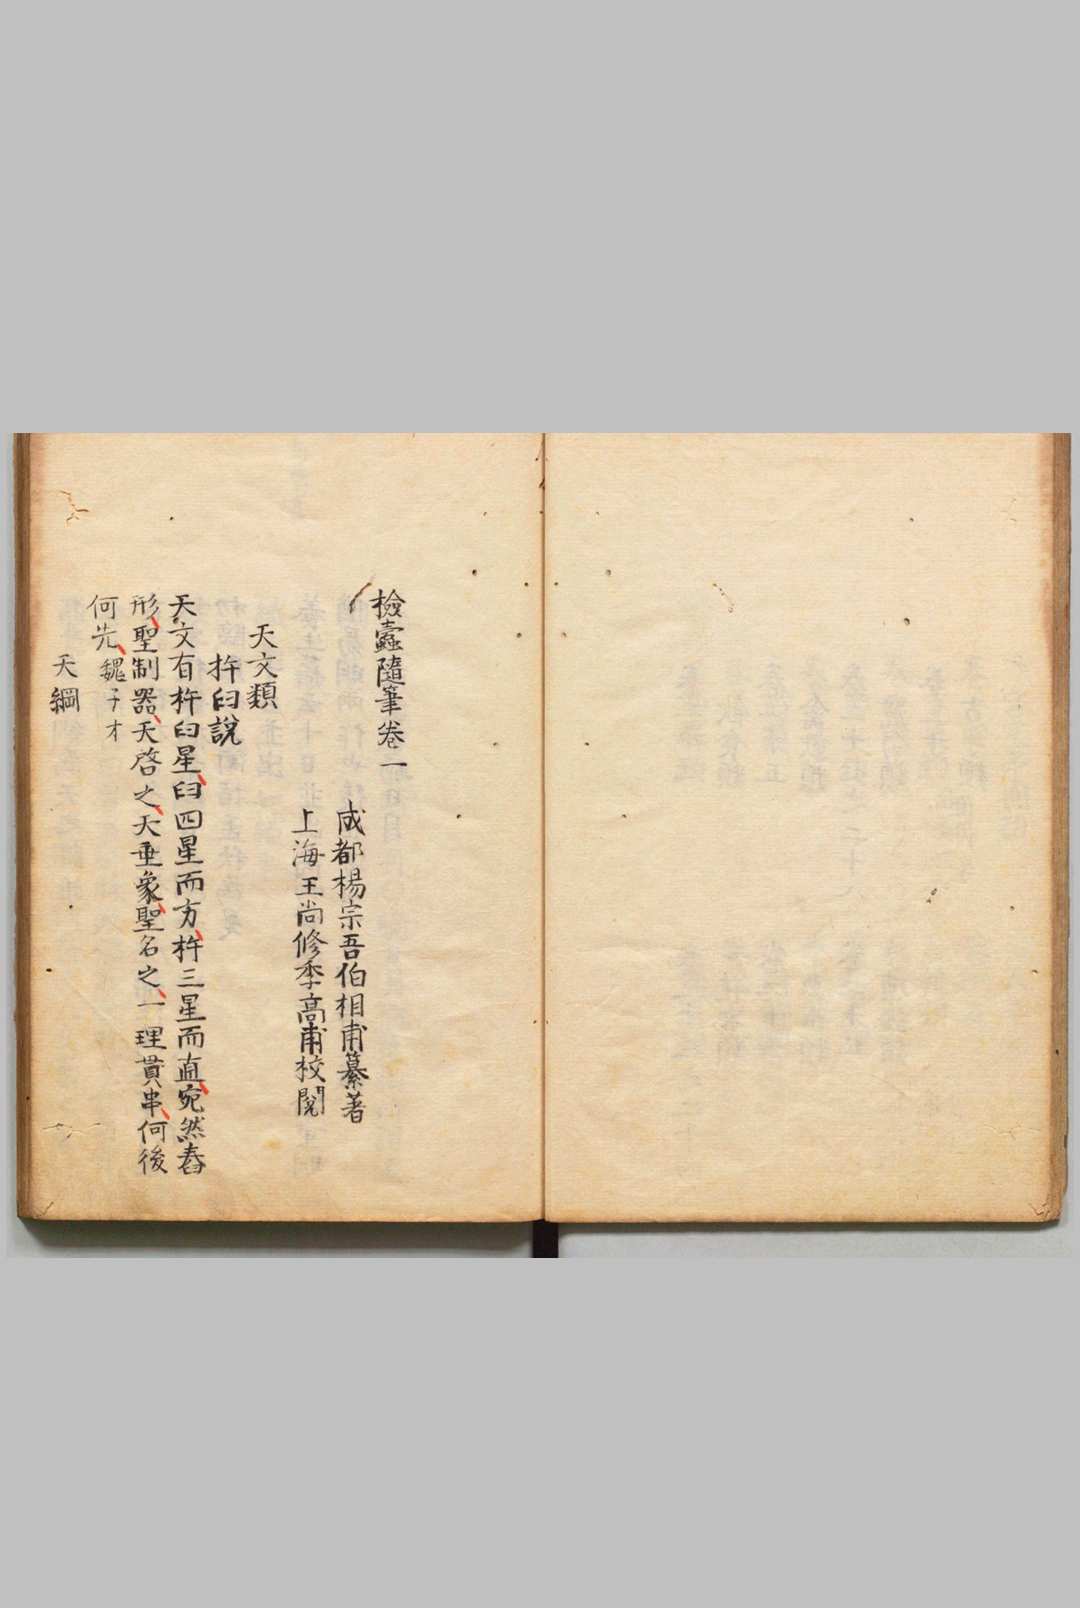 檢蠹隨筆卷一
成都楊宗吾伯相甫纂著
上海王尚修季高甫校閱
天文類
杵臼說
天文有杵臼星臼四星而方杵三星而直宛然舂
形聖制器天啓之天垂象聖名之一理貫串何後
何先魏子才
天綱